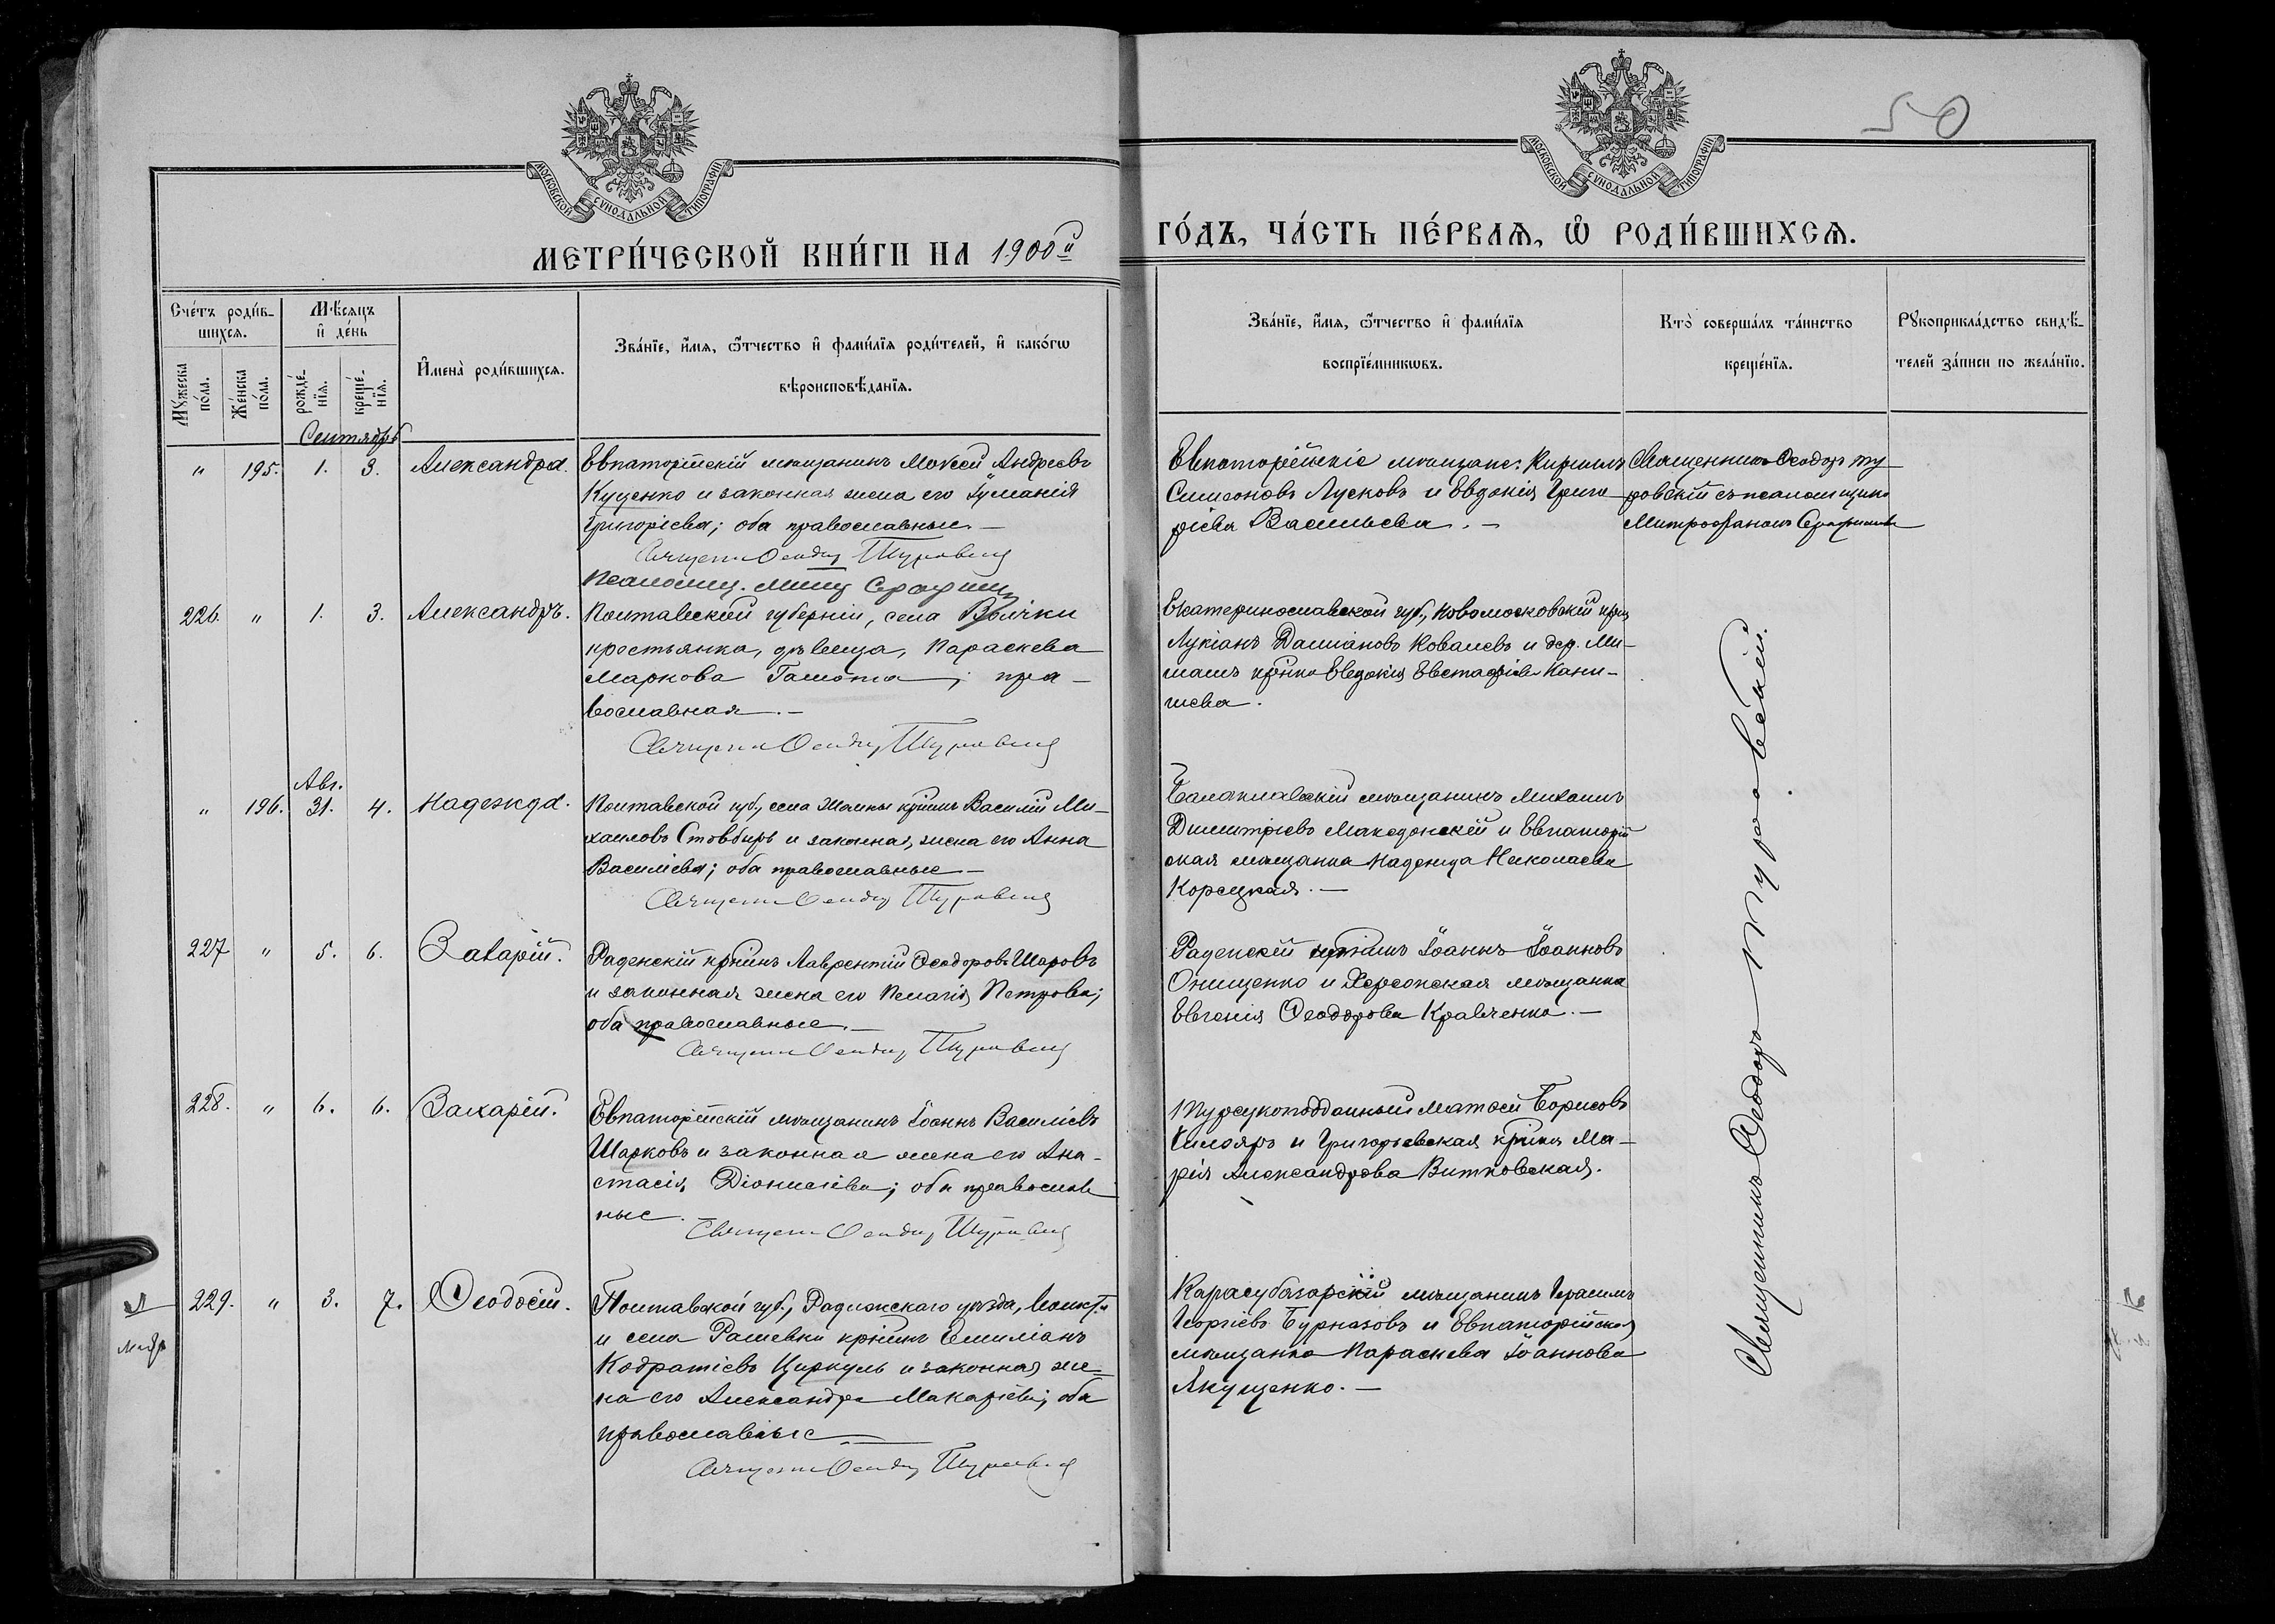 50
МОСКОВСКОЙ СУНОДАЛЬНОЙ ТИПОГРАФІИ
МОСКОВСКОЙ СУНОДАЛЬНОЙ ТИПОГРАФІИ
МЕТРИ́ЧЕСКОЙ КНИ́ГИ НА 1900й
ГО́ДЪ, ЧА́СТЬ ПЕ́РВАѦ, Ѡ҆ РОДИ́ВШИХСѦ.
Сче́тъ роди́в-
шихсѧ.
Мꙋ́жеска по́ла.
Же́нска по́ла.
Мѣ́сѧцъ
и҆ де́нь
рожде́-
нїѧ.
креще́-
нїѧ.
И҆мена̀ роди́вшихсѧ.
Зва́нїе, и҆́мѧ, ѻ҆́тчество и҆ фами́лїѧ роди́телей, и҆ како́гѡ
вѣроисповѣ́данїѧ.
Зва́нїе, и҆́мѧ, ѻ҆́тчество и҆ фами́лїѧ
воспрїе́мникѡвъ.
Кто̀ соверша́лъ та́инство
креще́нїѧ.
Рꙋкоприкла́дство свидѣ́-
телей за́писи по жела́нїю.
Сентябрь
" 195. 1. 3. Александра.
Евпаторійскій мѣщанинъ Моѵсей Андреевъ
Куценко и законная жена его Іуманія
Григоріева; оба православные.—
Священ Ѳеодор Туровскій
Псаломщ. Митр Серафим
Евпаторійскіе мѣщане: Кириллъ
Симеоновъ Лусковъ и Евдокія Григо
ріева Васильева.—
Священникъ Ѳеодоръ Ту
ровскій съ псаломщико
Митрофаномъ
226. " 1. 3. Александръ.
Полтавской губерніи, села
крестьянка, дѣвица, Параскева
Маркова ; пра-
вославная.—
Священ Ѳеодор Туровскій
Екатеринославской губ., Новомосковскій
Лукіанъ Даміановъ Ковалевъ и дер. Ми-
Евдокія Евстафіева Кани-
шева.
Авг.
" 196. 31. 4. Надежда.
Полтавской губ., села крнинъ Василій Ми-
хаиловъ Стовбырь и законная жена его Анна
Василіева; оба православные.—
Священ Ѳеодор Туровскій
Балаклавскій мѣщанинъ Михаилъ
Димитріевъ Македонскій и Евпаторій
ская мѣщанка Надежда Николаева
Корецкая.—
227 " 5. 6. Захарій.
Раденскій крнинъ Лаврентій Ѳеодоровъ Шаровъ
и законная жена его Пелагія Петрова;
оба православные.—
Священ Ѳеодор Туровскій
Раденскій Іоаннъ Іоанновъ
Онищенко и Херсонская мѣщанка
Евгенія Ѳеодорова Кравченко.—
228. " 6. 6. Захарій.
Евпаторійскій мѣщанинъ Іоаннъ Василіевъ
Шарковъ и законная жена его Ана-
стасія Діонисіева; оба православ
ные.—
Священ Ѳеодор Туровскій
Турецкоподданный Матѳей Борисовъ
и Григорьевская крнка Ма-
рія Александрова Витковская.
229. " 3. 7. Ѳеодосій.
Полтавской губ., уѣзда,
и села Рашевки крнинъ Емиліанъ
Кодратіевъ Циркуль и законная же=
на его Александра Макаріева; оба
православные.—
Священ Ѳеодор Туровскій
Карасубазарскій мѣщанинъ Герасимъ
Георгіевъ Бурназовъ и Евпаторійская
мѣщанка Параскева Іоаннова
Якущенко.—
Священникъ Ѳеодоръ Туровскій.